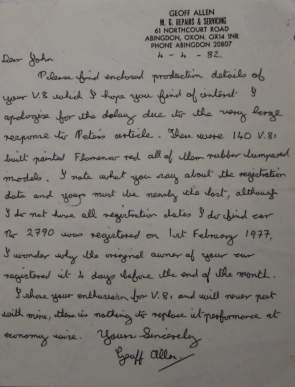 GEOFF ALLEN
M. G. REPAIRS & SERVICING
61 NORTHCOURT ROAD
ABINGDON, OXON. OX14 1NR
PHONE ABINGDON 20807
4 - 4 - 82.
Dear John
Please find enclosed production details of
your V.8 which I hope you find of interest I
apologise for the delay due to the very large
response to Peters article. There were 140 V.8s
built painted Flamenco red all of them rubber bumpered
models. I note what you say about the registration
date and yours must be nearly the last, although
I do not have all registration dates I do find car
No 2790 was registered on 1st February 1977.
I wonder why the original owner of your car
registered it 4 days before the end of the month.
I share your enthusiasm for V.8s and will never part
with mine, there is nothing to replace its performance at
economy wise. Yours Sincerely
Geoff Allen